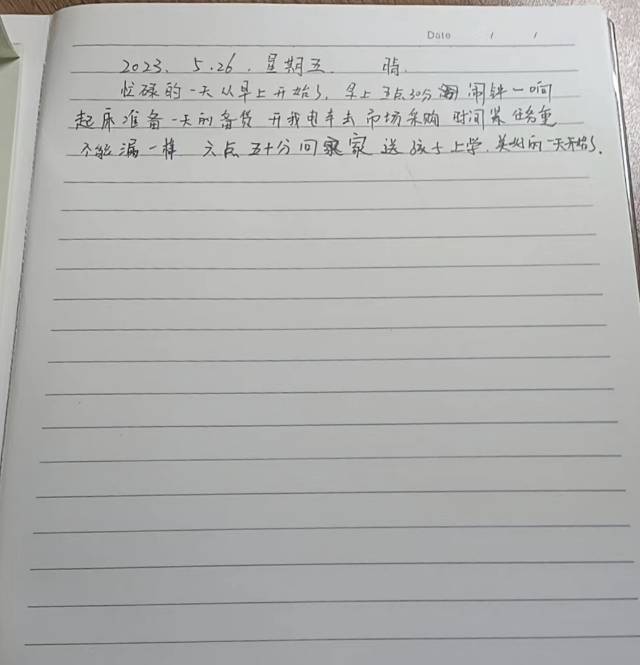 Date / /
2023. 5.26. 星期五. 晴.
忙碌的一天从早上开始了, 早上3点30分 闹钟一响
起床准备一天的备货 开我电车去市场采购 时间紧任务重
不能漏一样 六点五十分回家 送孩子上学. 美好的一天开始了.